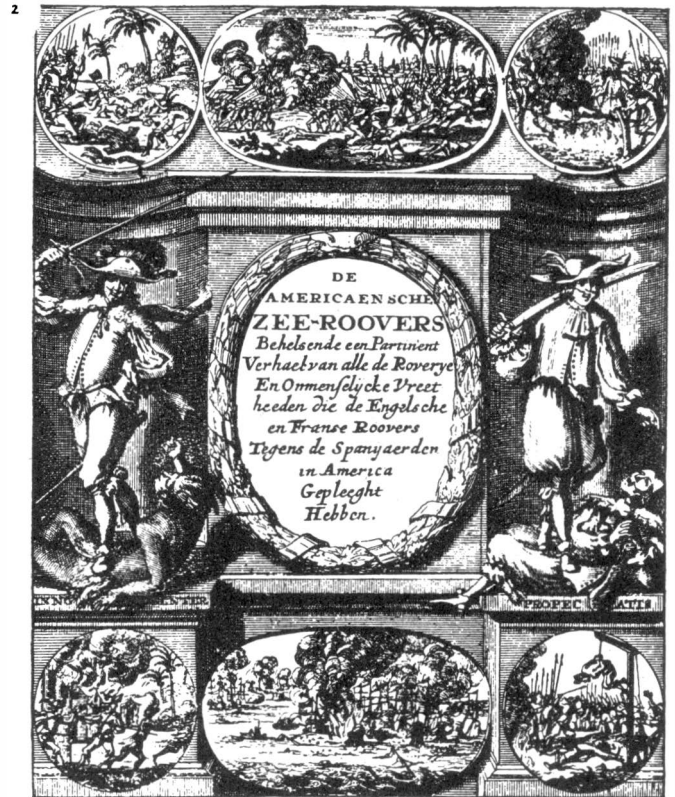 2
DE
AMERICAENSCHE
ZEE-ROOVERS
Behelsende een Partinent
Verhael van alle de Roverye
En Onmenselycke Vreet
heeden die de Engelsche
en Franse Roovers
Tegens de Spanyaerden
in America
Gepleeght
Hebben.